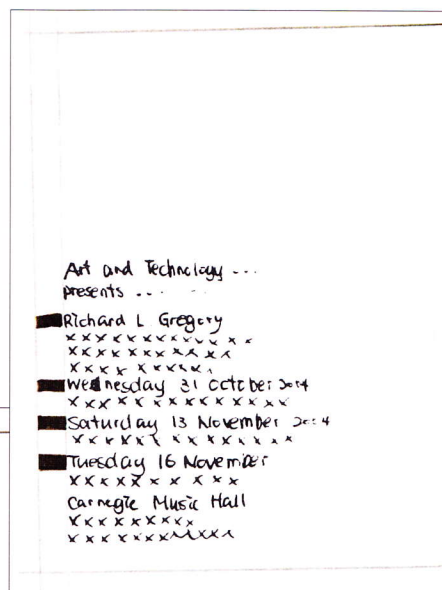 Art and Technology ...
presents ... ..
Richard L Gregory
x x x x x x x x x x x x x
x x x x x x x x x x x
x x x x x x x x x
Wednesday 31 october 2004
x x x x x x x x x x x x x
Saturday 13 November 2004
x x x x x x x x x x x x x
Tuesday 16 November
x x x x x x x x x
Carnegie Music Hall
x x x x x x x x x
x x x x x x x x x x x x